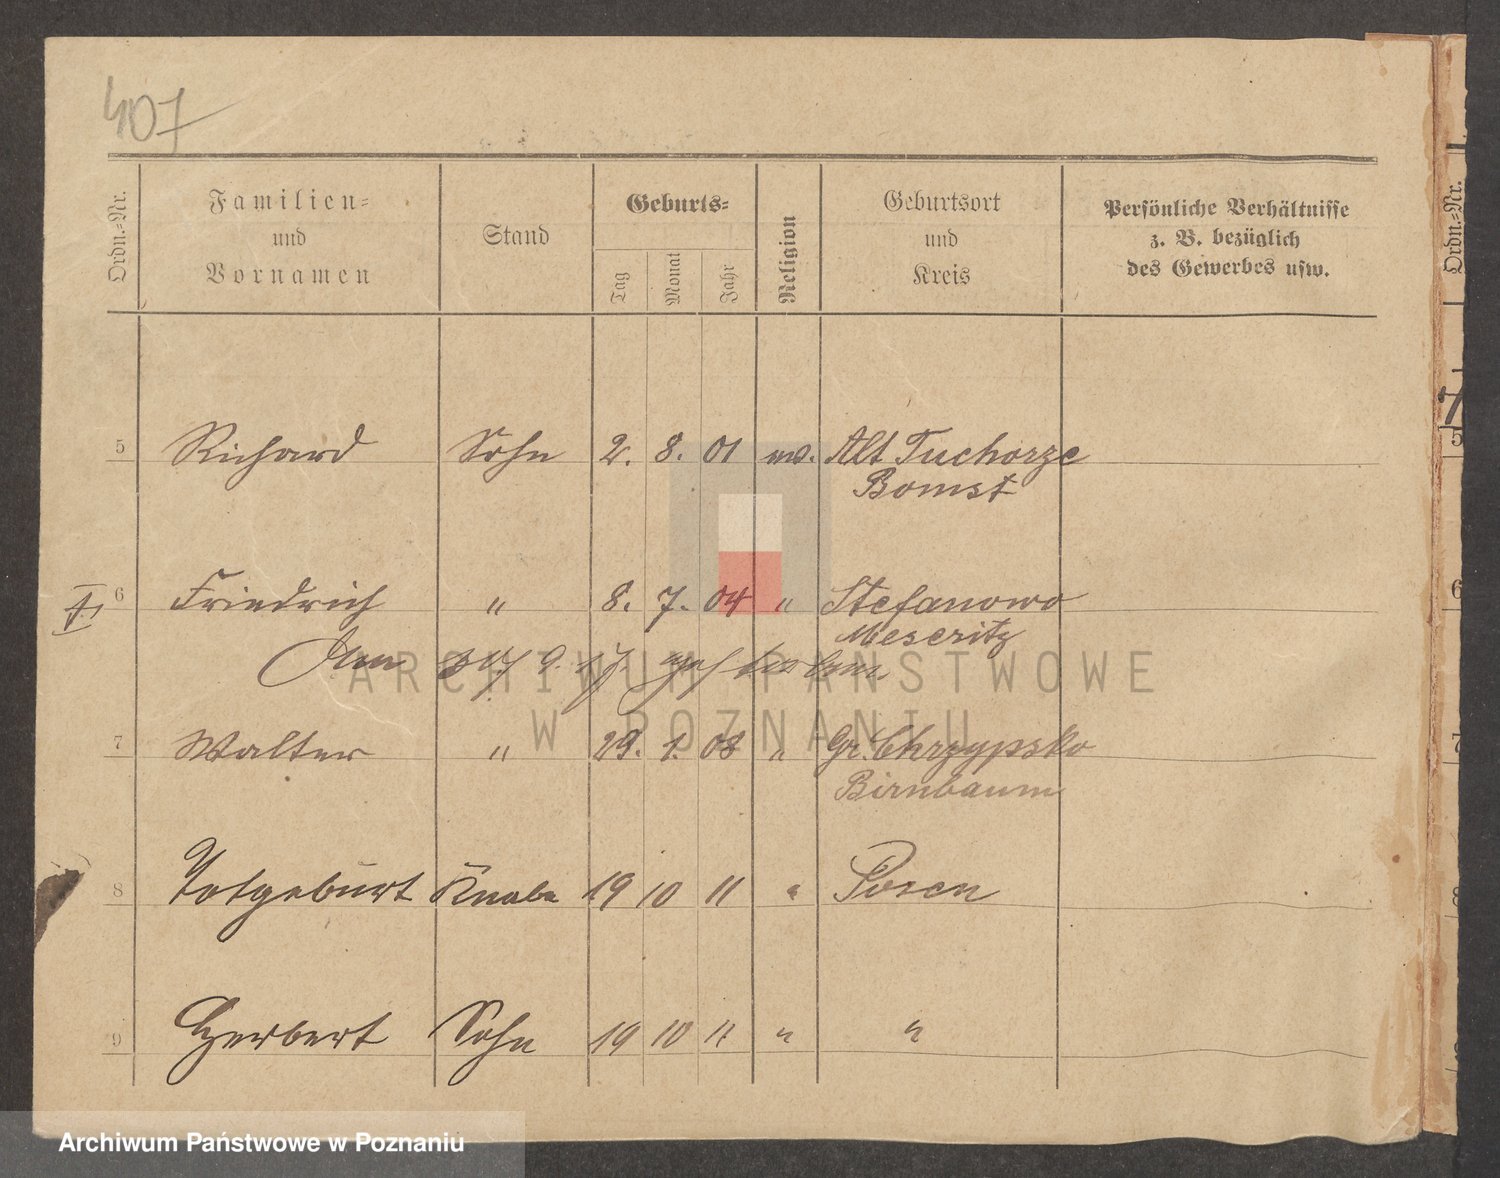 407
Ordn.-Nr.
Familien-
und
Vornamen
Stand
Geburts-
Tag
Monat
Jahr
Religion
Geburtsort
und
Kreis
Persönliche Verhältnisse
z. B. bezüglich
des Gewerbes usw.
Ordn.-Nr.
5 Richard Sohn 2. 8. 01 ev. Alt Tuchorze
Bomst
6 Friedrich " 8. 7. 04 " Stefanowo
Meseritz
Am 9. 17. gestorben.
7 Walter " 29. 1. 08 " Gr. Chrzypsko
Birnbaum
8 Totgeburt Knabe 19 10 11 " Posen
9 Herbert Sohn 19 10 11 " "
7
5
6
ARCHIWUM PAŃSTWOWE
W POZNANIU
Archiwum Państwowe w Poznaniu